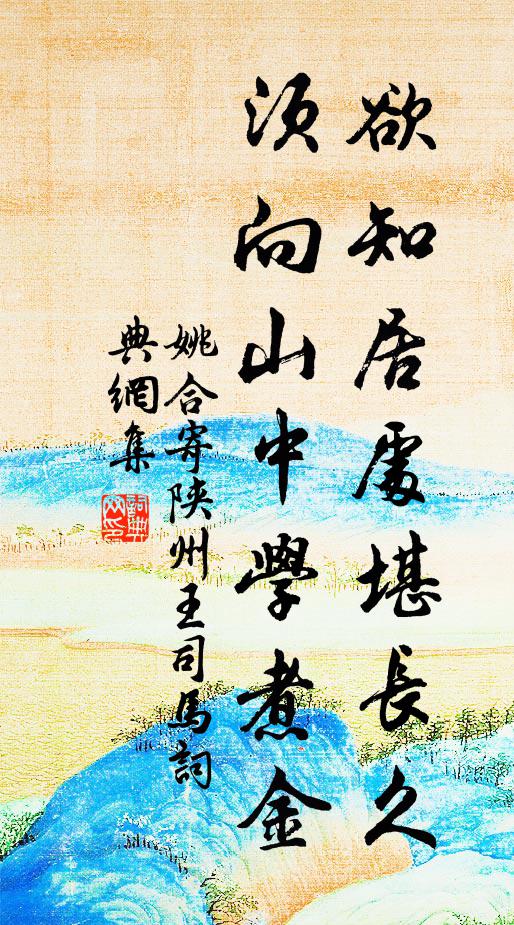 欲知居處堪長久
須向山中學煮金
姚合寄陝州王司馬詞
典網集